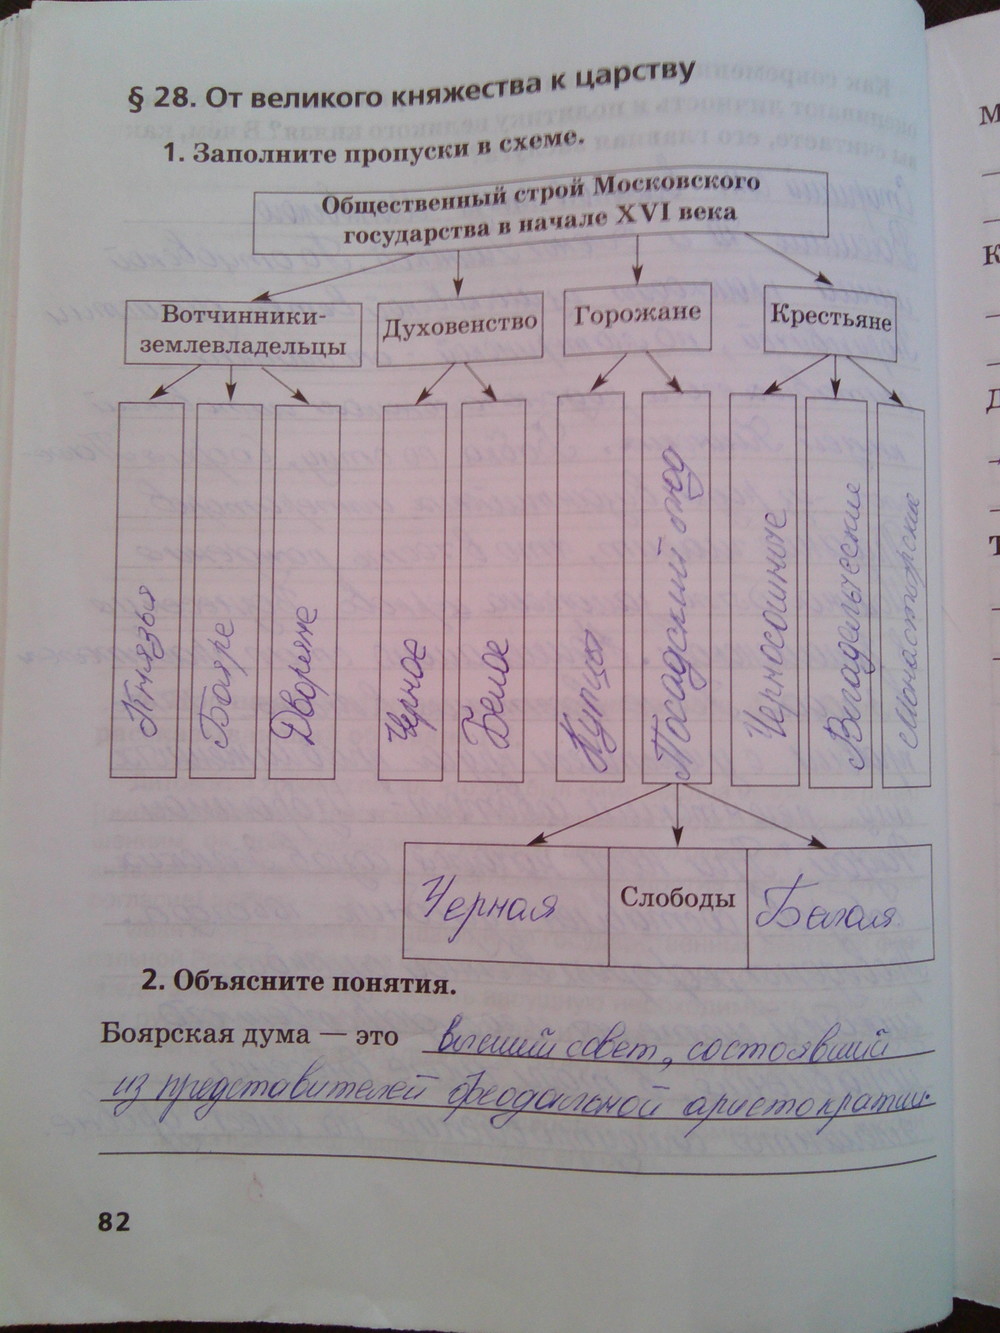 § 28. От великого княжества к царству
1. Заполните пропуски в схеме.
Общественный строй Московского
государства в начале XVI века
Вотчинники-
землевладельцы
Духовенство
Горожане
Крестьяне
Князья
Бояре
Дворяне
Черное
Белое
Купцы
Посадский люд
Черносошное
Владельческие
Монастырские
Черная
Слободы
Белая
2. Объясните понятия.
Боярская дума — это высший совет, состоявший
из представителей феодальной аристократии.
82
М
К
Д
Т